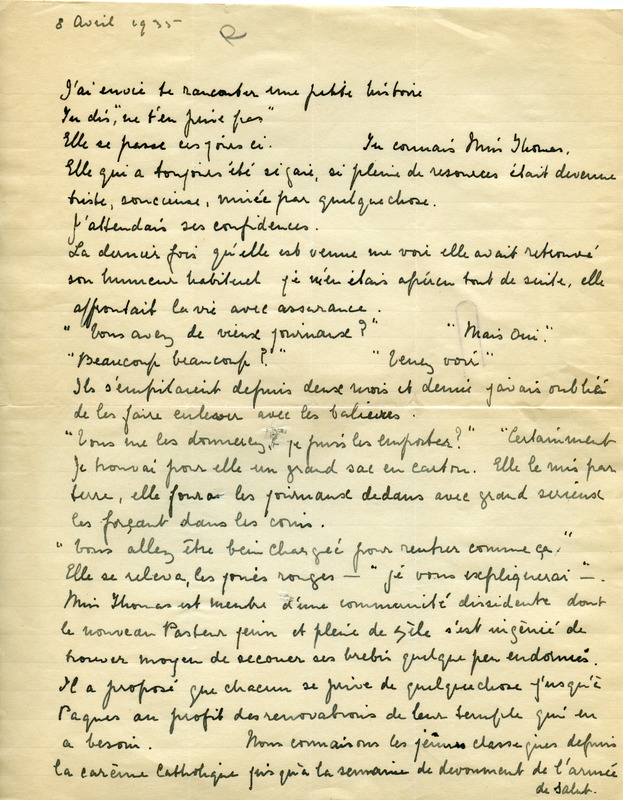 8 Avril 1935
R
J'ai envie te raconter une petite histoire
Tu dis, "ne t'en prive pas"
Elle se passe ces joirs ci. Tu connais Miss Thomas.
Elle qui a toujoirs été si gaie, si pleine de resources était devenue
triste, soucieuse, minée par quelque chose.
J'attendais ses confidences.
La dernier fois qu'elle est venue me voir elle avait retrouvé
son humeur habituel je m'en étais aperçu tout de suite, elle
affrontait la vie avec assurance.
"Vous avez de vieux journaux?" "Mais oui."
"Beaucoup beaucoup?" "Venez voir"
Ils s'empilaient depuis deux mois et demie j'avais oublié
de les faire enlever avec les balieures.
"Vous me les donnerez, je puis les emporter?" "Certainment
Je trouvai pour elle un grand sac en carton. Elle le mis par
terre, elle fourra les journaux dedans avec grand serieux
les forçant dans les coins.
"Vous allez être bein chargée pour rentrer comme ça."
Elle se releva, les joues rouges — "je vous expliquerai" —.
Miss Thomas est membre d'une communité dissidente dont
le nouveau Pasteur jeun et plein de zèle s'est ingénié de
trouver moyen de secouer ses brebis quelque peu endormis.
Il a proposé que chacun se prive de quelque chose jusqu'à
Paques au profit des renovations de leur temple qui en
a besoin. Nous connaisons les jeûnes classeques depuis
la carème Catholique jusqu'à la semaine de devoument de l'armée
de Salut.